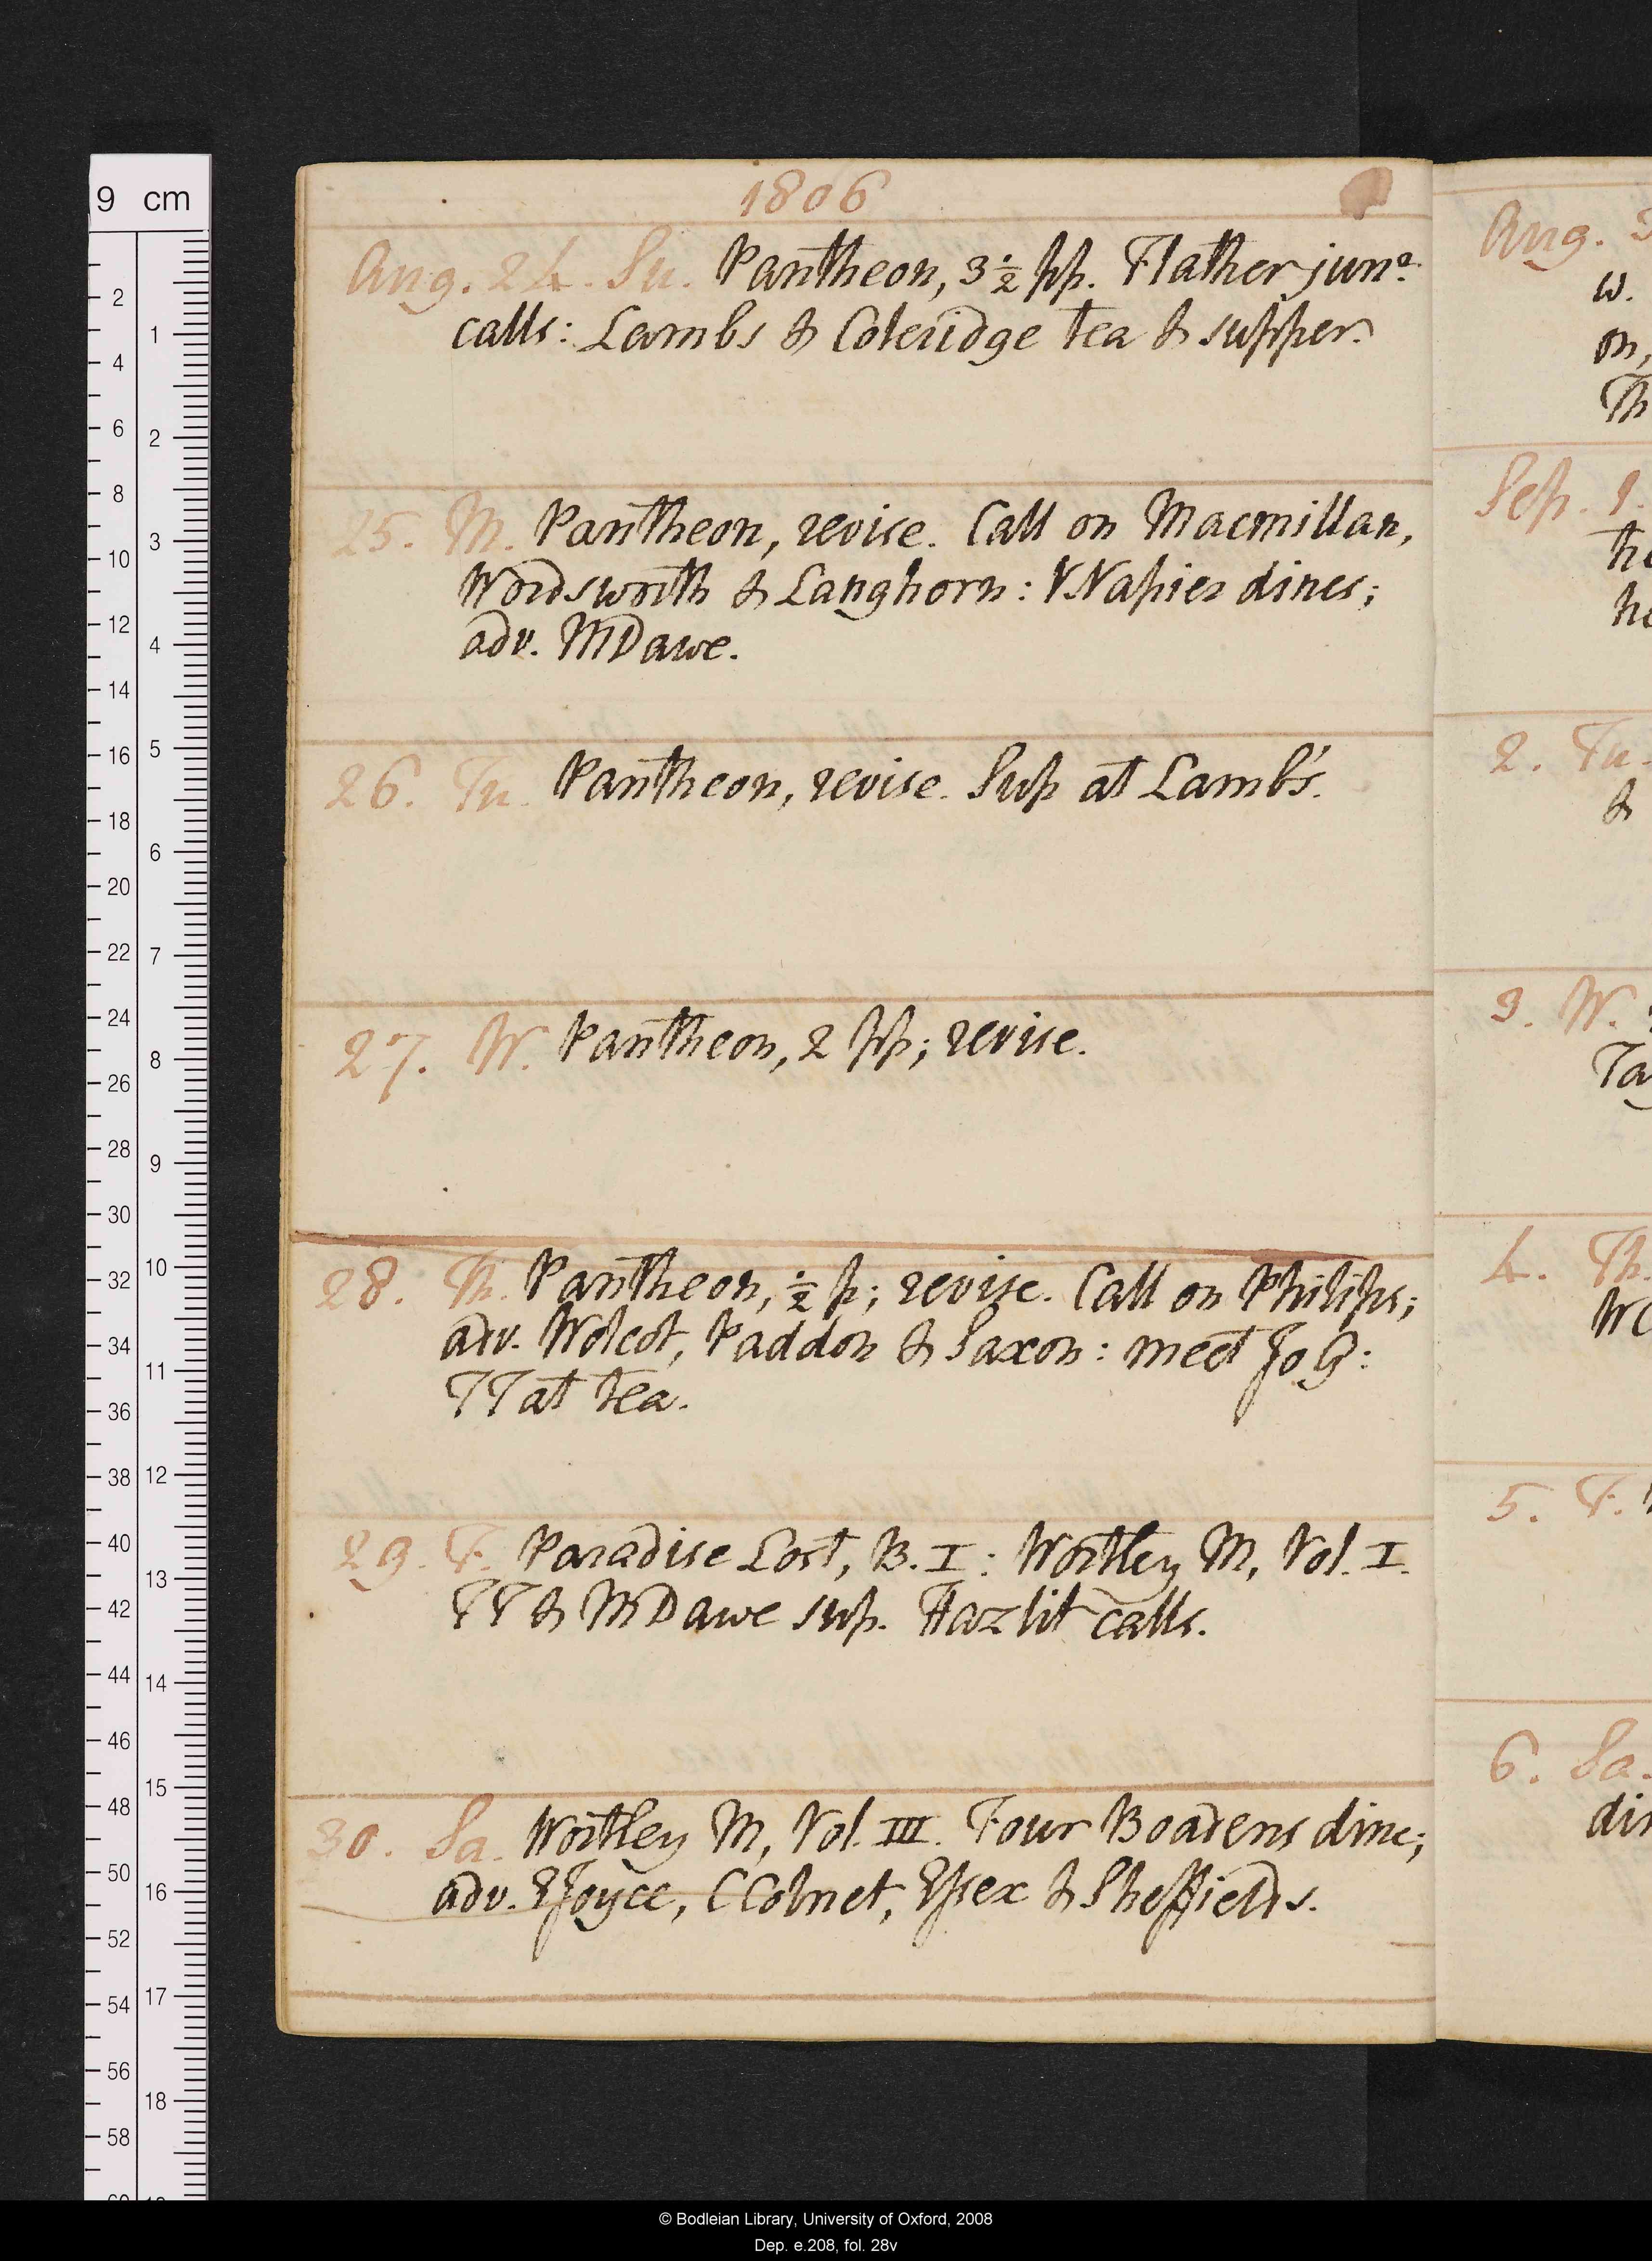 1806
Aug. 24. Su. Pantheon, 3 1/2 pp. Flather junr
calls: Lambs & Coleridge tea & supper.
25. M. Pantheon, revise. Call on Macmillan,
Wordsworth & Langhorn: VNapier dines;
adv. MDawe.
26. Tu. Pantheon, revise. Sup at Lamb's.
27. W. Pantheon, 2 pp; revise.
28. Th. Pantheon, 1/2 p; revise. Call on Philips;
adv. Wolcot, Paddon & Saxon: meet Jo G:
TT at tea.
29. F. Paradise Lost, B. I: Wortley M, Vol. I.
TT & MDawe sup. Hazlit calls.
30. Sa. Wortley M, Vol. III. Four Boadens dine;
adv. EJoyce, CColnet, Essex & Sheffields.
Aug. 3
w.
on,
Th
Sep. 1.
he
2. Tu.
&
3. W.
Ta
4. Th.
WC
5. F.
6. Sa.
din
9 cm
2
4
6
8
10
12
14
16
18
20
22
24
26
28
30
32
34
36
38
40
42
44
46
48
50
52
54
56
58
1
2
3
4
5
6
7
8
9
10
11
12
13
14
15
16
17
18
© Bodleian Library, University of Oxford, 2008
Dep. e.208, fol. 28v